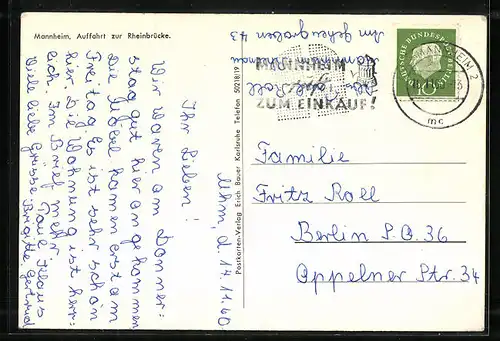 Mannheim, Auffahrt zur Rheinbrücke.
Mhm, d. 17.11.60
Ihr Lieben!
Wir waren am Donner-
stag gut hier angekommen
Die Möbel kamen erst am
Freitag. Es ist sehr schön
hier. Die Wohnung ist herr-
lich. Im Brief mehr
Viele liebe Grüsse Paul Klaus
Brigitte Gertrud
Postkarten-Verlag Erich Bauer Karlsruhe Telefon 50218/19
Im
43
MANNHEIM
ZUM EINKAUF!
DEUTSCHE BUNDESPOST BERLIN
10
MANNHEIM 2
mc
Familie
Fritz Roll
Berlin S.O. 36
Oppelner Str. 34